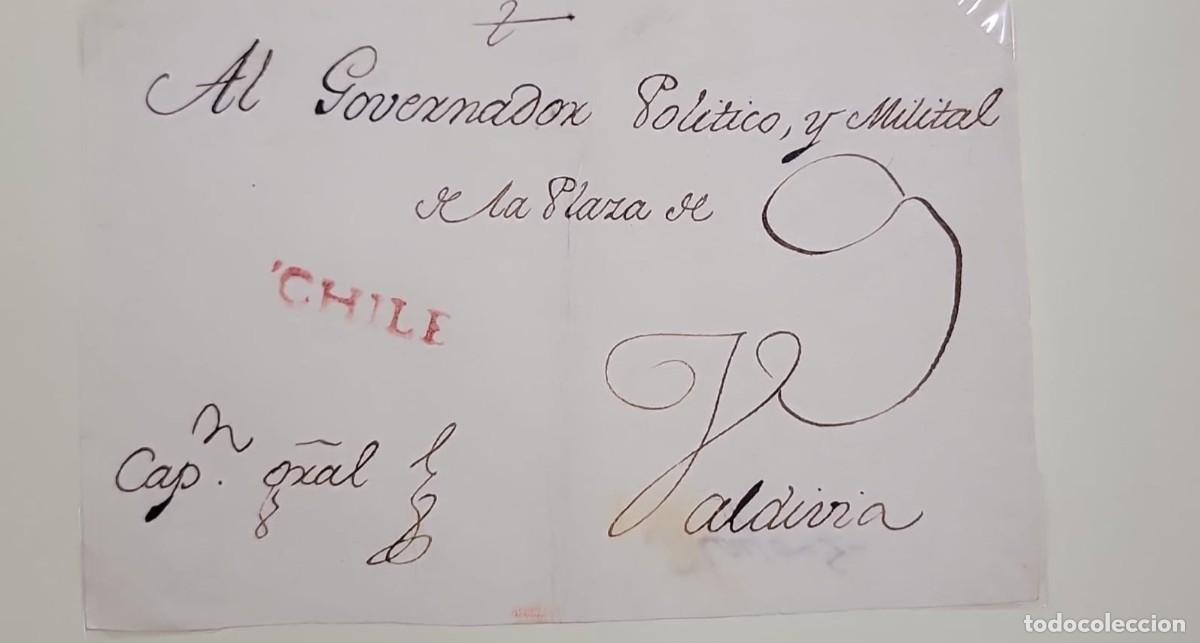 Al Governador Politico, y Milital
de la Plaza de
CHILE
Valdivia
Cap.n gral
todocoleccion